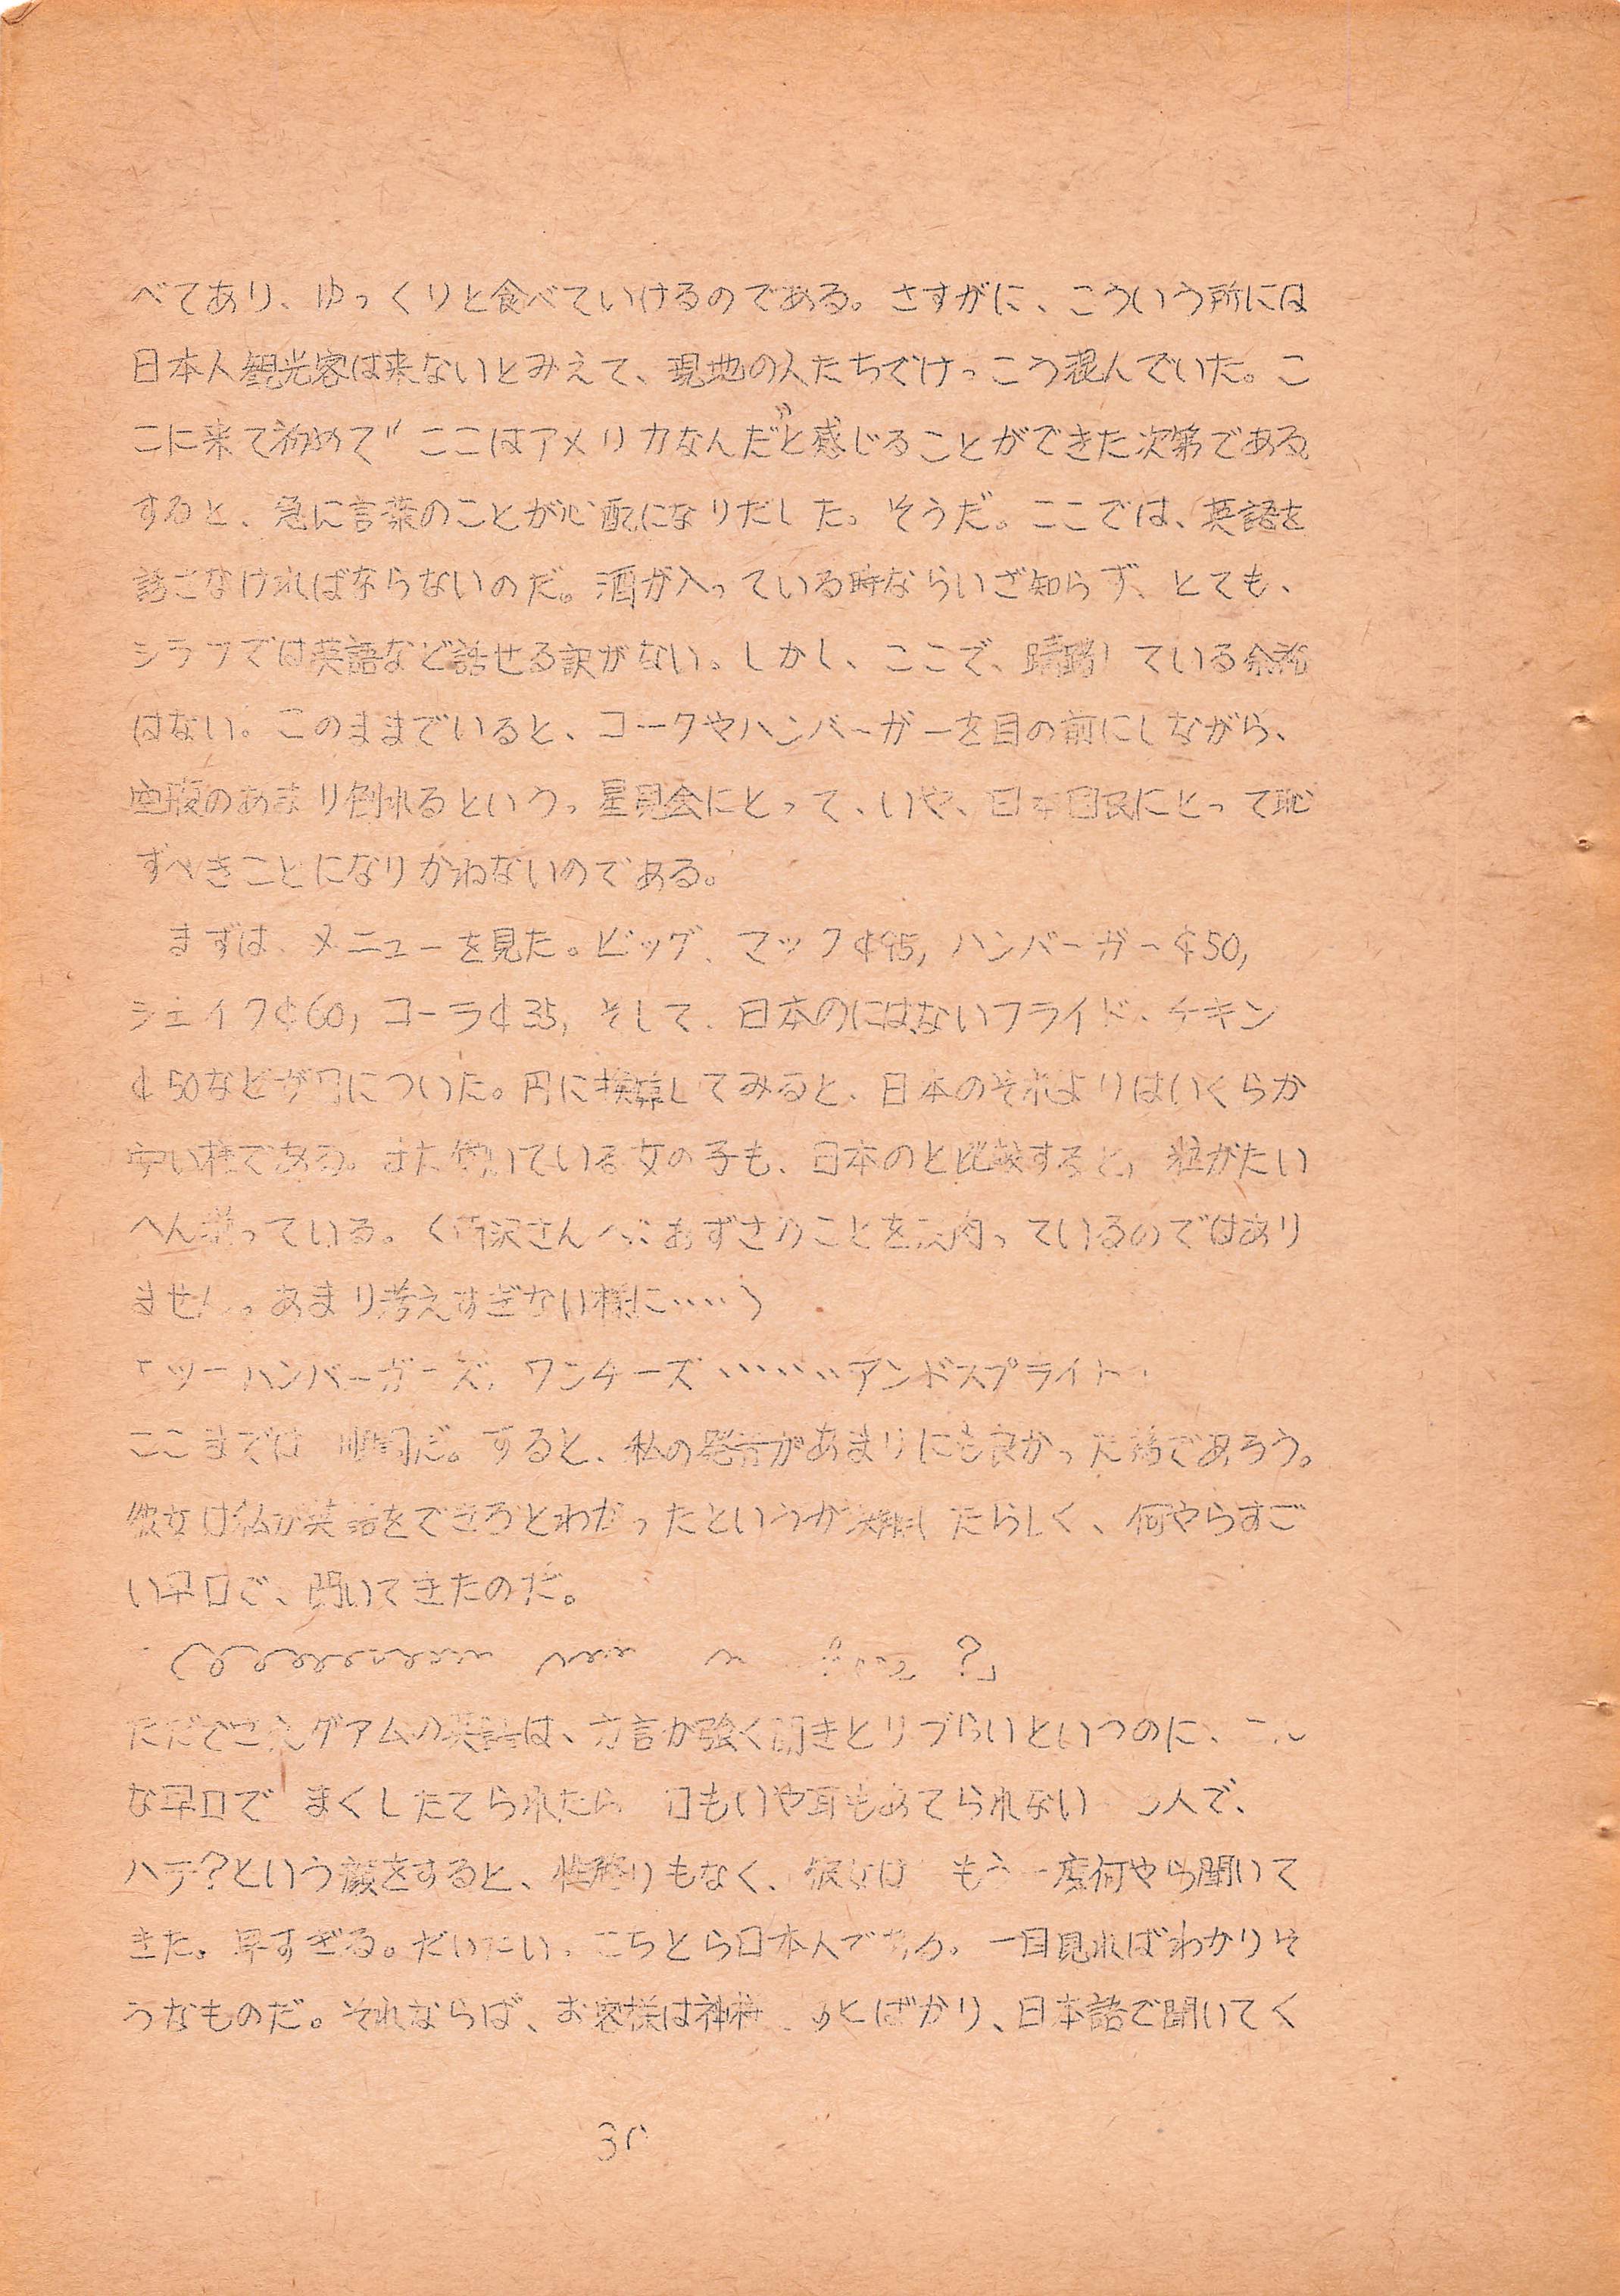 べてあり、ゆっくりと食べていけるのである。さすがに、こういう所には
日本人観光客は来ないとみえて、現地の人たちでけっこう混んでいた。こ
こに来て初めて〃ここはアメリカなんだ〃と感じることができた次第である。
すると、急に言葉のことが心配になりだした。そうだ。ここでは、英語を
話さなければならないのだ。酒が入っている時ならいざ知らず、とても、
シラフでは英語など話せる訳がない。しかし、ここで、躊躇している余裕
はない。このままでいると、コークやハンバーガーを目の前にしながら、
空腹のあまり倒れるという。星見会にとって、いや、日本国民にとって恥
ずべきことになりかねないのである。
まずは、メニューを見た。ビッグ、マック¢95, ハンバーガー¢50,
シェイク¢60, コーラ¢35, そして、日本のにはないフライド・チキン
¢50などが目についた。円に換算してみると、日本のそれよりはいくらか
安い様である。また働いている女の子も、日本のと比較すると, 粒がたい
へん揃っている。(沢さんへ:あずさのことを皮肉っているのではあり
ません。あまり考えすぎない様に……)
「ツーハンバーガーズ, ワンチーズ………アンドスプライト」
ここまでは 順調だ。すると、私の発音があまりにも良かった為であろう。
彼女は私が英語をできるとわかったというか 誤解したらしく、何やらすご
い早口で、聞いてきたのだ。
?」
ただでさえグアムの英語は、方言が強く聞きとりづらいというのに、こん
な早口で まくしたてられたら 目もいや耳もあてられない 人で、
ハテ?という顔をすると、性懲りもなく、彼女は もう一度何やら聞いて
きた。早すぎる。だいたい、こちとら日本人である。一目見ればわかりそ
うなものだ。それならば、お客様は神様 とばかり、日本語で聞いてく
30